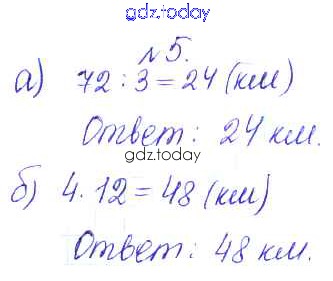 gdz.today
№5.
а) 72 : 3 = 24 (км)
Ответ: 24 км.
gdz.today
б) 4 · 12 = 48 (км)
Ответ: 48 км.